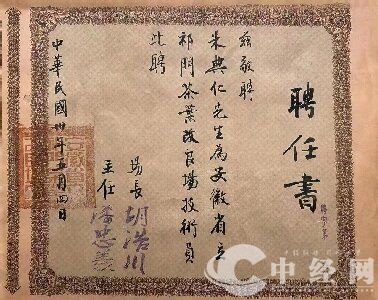 聘任書
茲敬聘
朱典仁先生為安徽省立
祁門茶葉改良場技術員
此聘
場長 胡浩川
主任 潘忠義
中華民國卅年五月四日
中经网